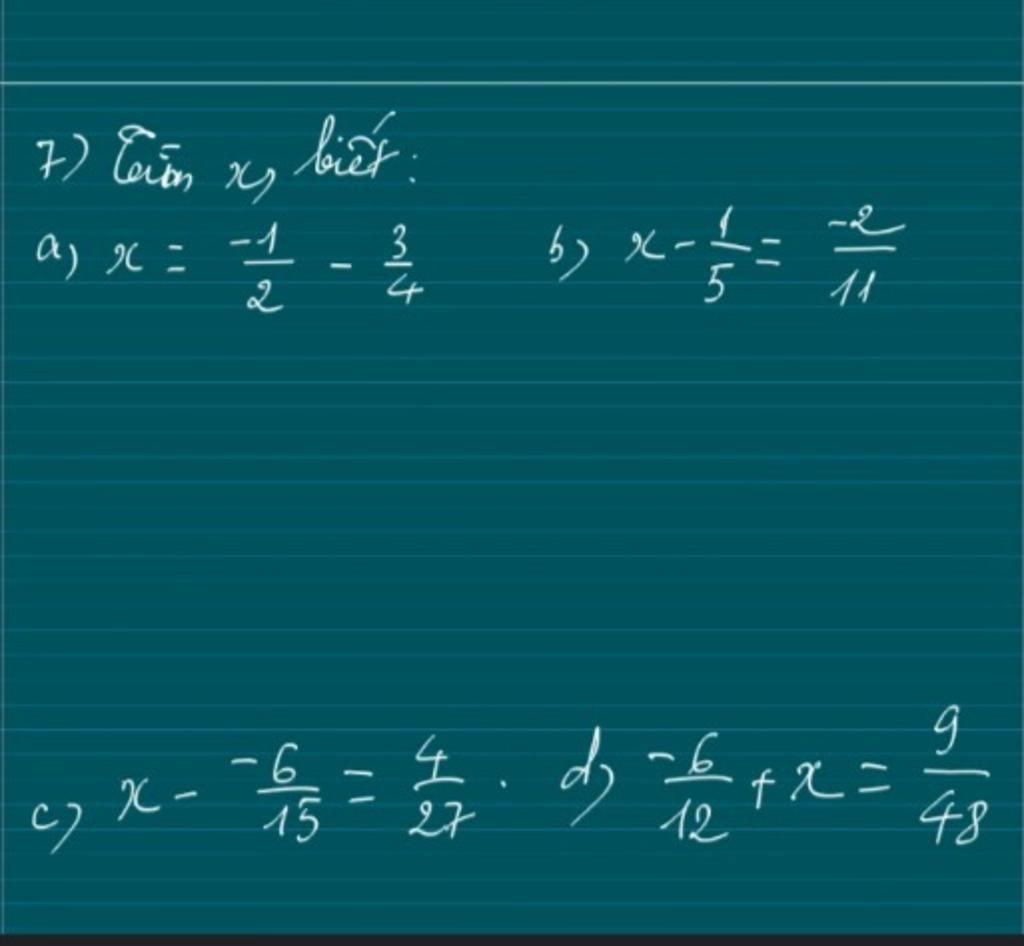 7) Tìm x, biết:
a) x = -1/2 - 3/4 b) x - 1/5 = -2/11
c) x - -6/15 = 4/27 . d) -6/12 + x = 9/48